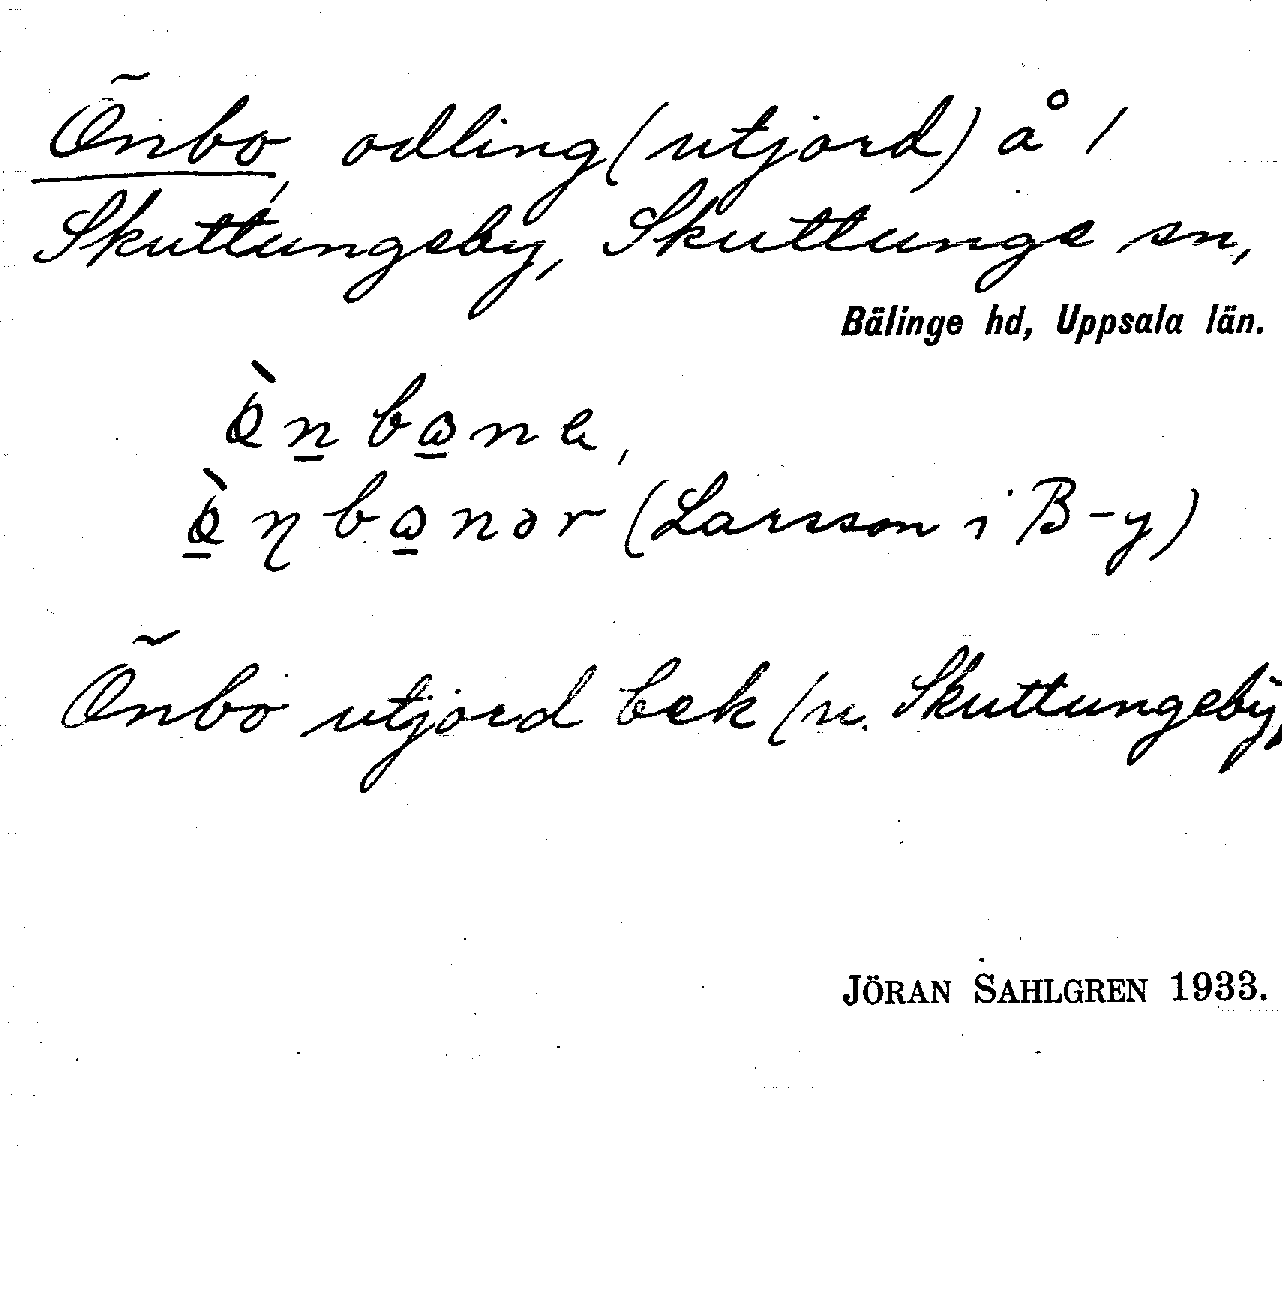 Önbo, odling (utjord) å /
Skuttungeby, Skuttunge sn,
Bälinge hd, Uppsala län.
(Larsson i B-y)
Önbo utjord bek /u. Skuttungeby,
JÖRAN SAHLGREN 1933.